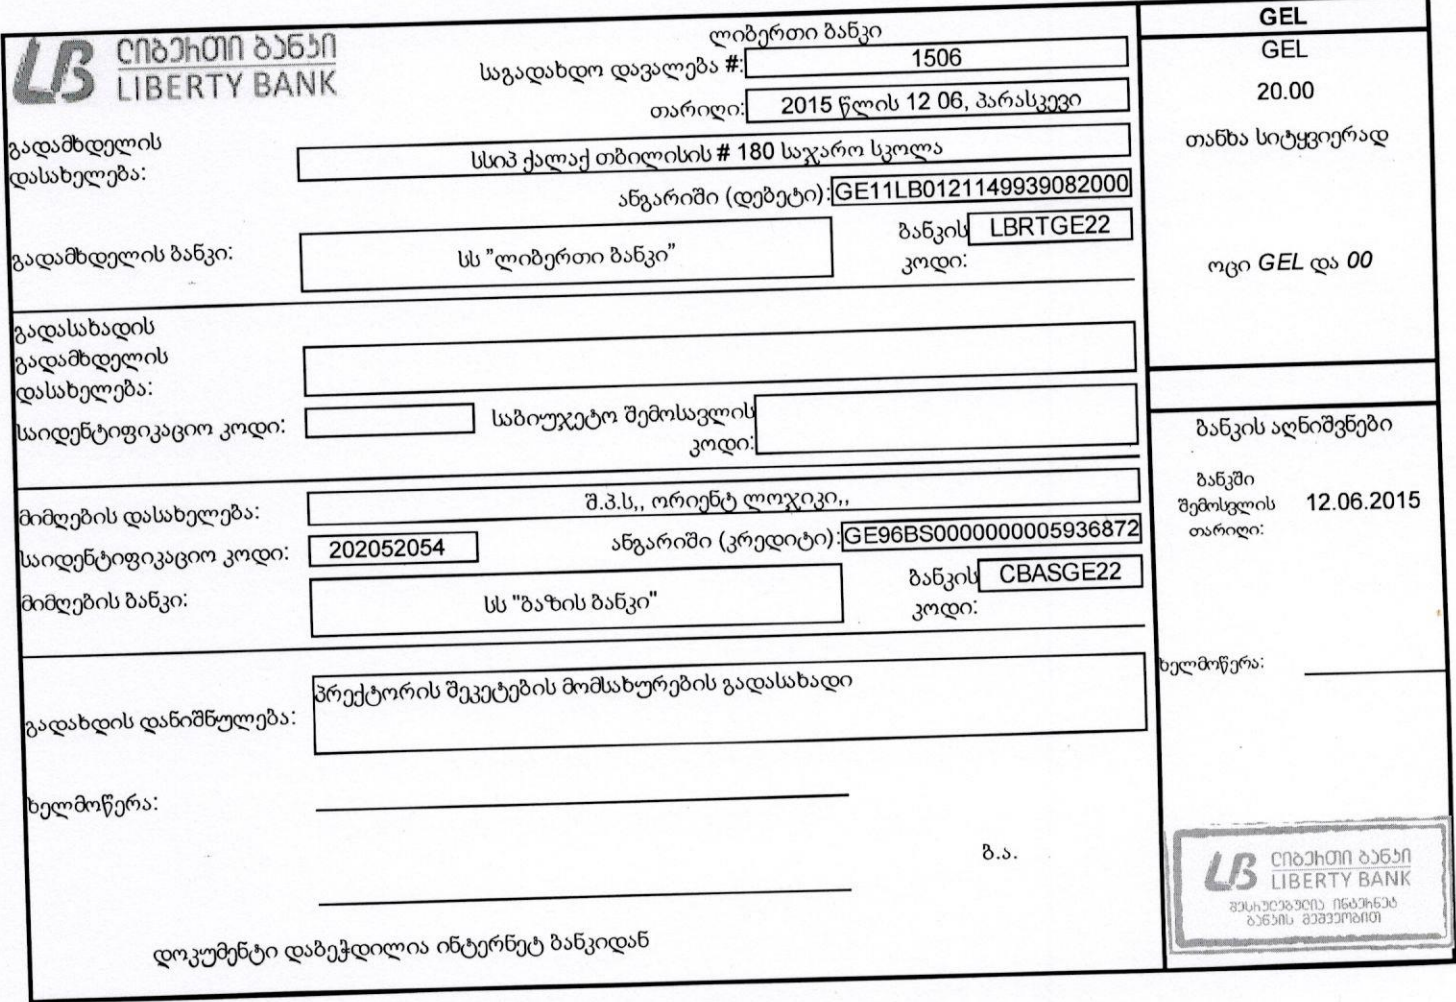 ლიბერთი ბანკი
LIBERTY BANK
ლიბერთი ბანკი
საგადახდო დავალება #: 1506
თარიღი: 2015 წლის 12 06, პარასკევი
გადამხდელის
დასახელება:
სსიპ ქალაქ თბილისის # 180 საჯარო სკოლა
ანგარიში (დებეტი): GE11LB0121149939082000
გადამხდელის ბანკი: სს "ლიბერთი ბანკი"
ბანკის
კოდი:
LBRTGE22
გადასახადის
გადამხდელის
დასახელება:
საიდენტიფიკაციო კოდი:
საბიუჯეტო შემოსავლის
კოდი:
მიმღების დასახელება: შ.პ.ს,, ორიენტ ლოჯიკი,,
საიდენტიფიკაციო კოდი: 202052054
ანგარიში (კრედიტი): GE96BS0000000005936872
მიმღების ბანკი: სს "ბაზის ბანკი"
ბანკის
კოდი:
CBASGE22
გადახდის დანიშნულება: პრექტორის შეკეტების მომსახურების გადასახადი
ხელმოწერა:
ბ.ა.
დოკუმენტი დაბეჭდილია ინტერნეტ ბანკიდან
GEL
GEL
20.00
თანხა სიტყვიერად
ოცი GEL და 00
ბანკის აღნიშვნები
ბანკში
შემოსვლის
თარიღი:
12.06.2015
ხელმოწერა:
ლიბერთი ბანკი
LIBERTY BANK
შესრულებულია ინტერნეტ
ბანკის მეშვეობით